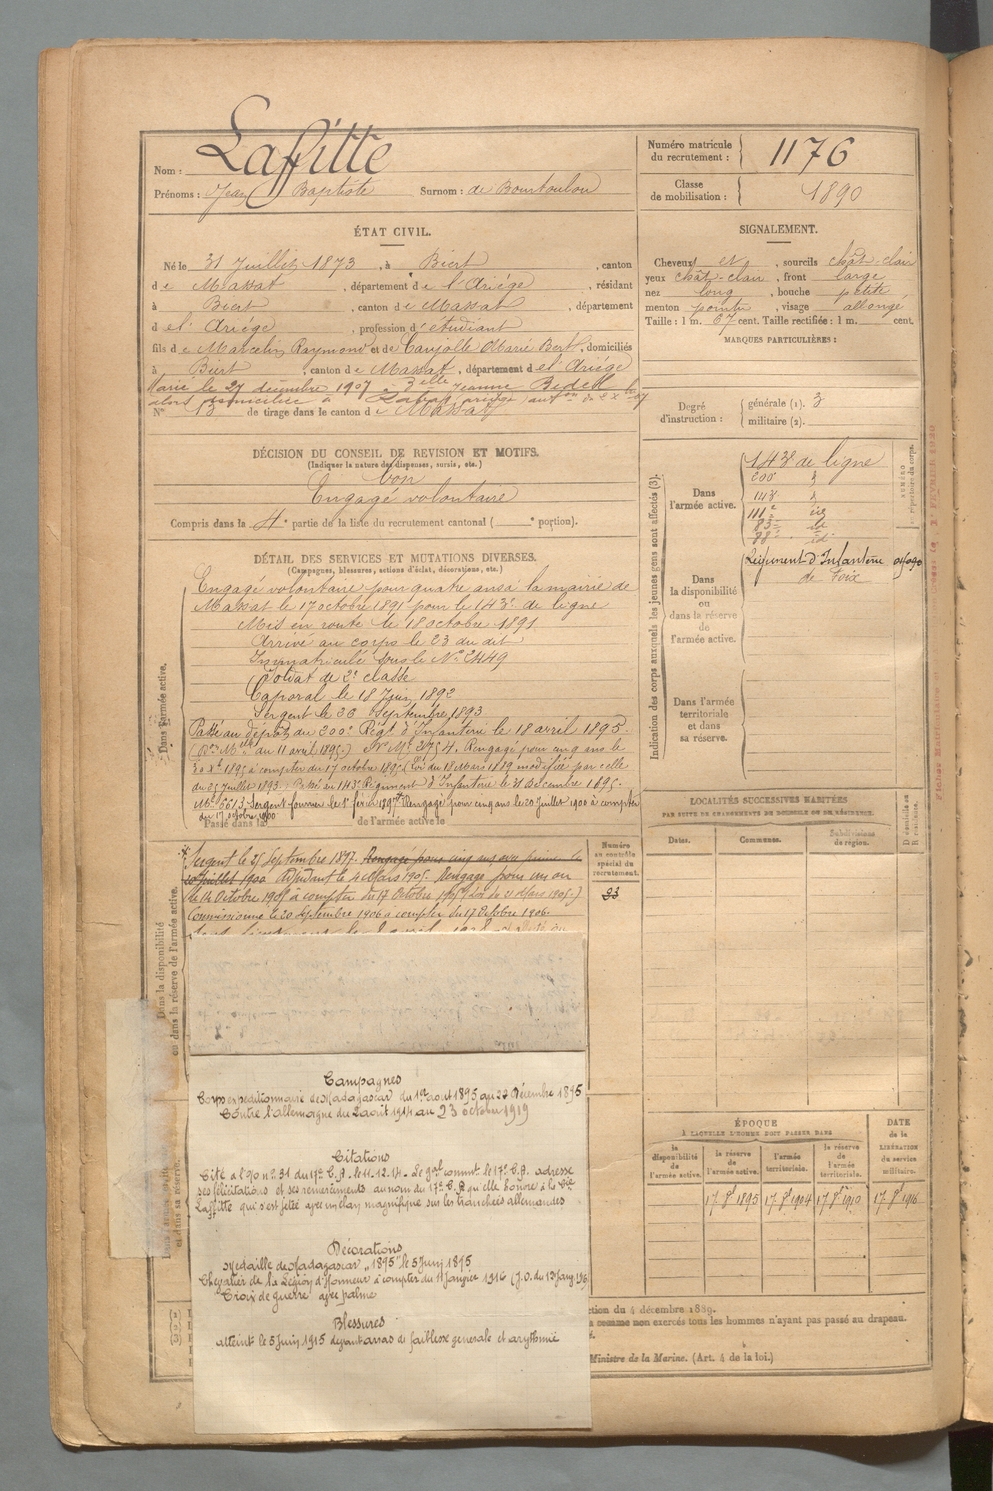 Nom : Lafitte
Prénoms : Jean Baptiste Surnom : de Bourtoulou
Numéro matricule
du recrutement : 1176
Classe
de mobilisation : 1890
ÉTAT CIVIL.
Né le 31 Juillet 1873, à Biert, canton
de Massat, département de l'Ariége, résidant
à Biert, canton de Massat, département
d el' Ariége, profession d'étudiant
fils de Marcelin Raymond et de Carjolle Marie Bert, domiciliés
à Biert, canton de Massat, département d el' Ariége
Marié le 27 décembre 1907 à Jeanne Bedell
alors domiciliée à
N° 13 de tirage dans le canton de Massat
SIGNALEMENT.
Cheveux et, sourcils chât-clair
yeux chât-clair, front large
nez long, bouche petite
menton pointu, visage allongé
Taille : 1 m. 67 cent. Taille rectifiée : 1 m. cent.
MARQUES PARTICULIÈRES :
Degré
d'instruction :
générale (1). 3
militaire (2).
DÉCISION DU CONSEIL DE REVISION ET MOTIFS.
(Indiquer la nature des dispenses, sursis, etc.)
bon
Engagé volontaire
Compris dans la 4e partie de la liste du recrutement cantonal ( e portion).
DÉTAIL DES SERVICES ET MUTATIONS DIVERSES.
(Campagnes, blessures, actions d'éclat, décorations, etc.)
Dans l'armée active.
Engagé volontaire pour quatre ans à la mairie de
Massat le 17 octobre 1891 pour le 143e de ligne
Mis en route le 18 octobre 1891
Arrivé au corps le 23 du dit
Immatriculé sous le N° 2449
Soldat de 2e classe
Caporal le 18 Juin 1892
Sergent le 26 septembre 1893
Passé au dépôt du 200e Régt d'Infanterie le 18 avril 1895.
du 11 avril 1895.) Rengagé pour cinq ans le
1895 à compter du 17 octobre 1895 (Loi du 18 Mars 1889 modifiée par celle
du 25 Juillet 1893.) Passé au 143e Régiment d'Infanterie le 31 Décembre 1895.
Sergent fourrier le 1er 1897 Rengagé pour cinq ans le 20 Juillet 1900 à compter
du 17 octobre 1900
Passé dans la de l'armée active le
Dans la disponibilité
ou dans la réserve de l'armée active.
Sergent le 25 Septembre 1897. Rengagé pour cinq ans avec prime le
20 Juillet 1900 Adjudant le 4 Mars 1905. Rengagé pour un an
le 14 Octobre 1905 à compter du 17 Octobre 1905 (Loi du 21 Mars 1905.)
Commissionné le 20 Septembre 1906 à compter du 17 Octobre 1906.
Numéro
au contrôle
spécial du
recrutement.
93
Indication des corps auxquels les jeunes gens sont affectés (3).
Dans
l'armée active.
143e de ligne
200
111e
83e
88e
Dans
la disponibilité
ou
dans la réserve
de
l'armée active.
Régiment d'Infanterie
de Foix
Dans l'armée
territoriale
et dans
sa réserve.
NUMÉRO
LOCALITÉS SUCCESSIVES HABITÉES
PAR SUITE DE CHANGEMENTS DE DOMICILE OU DE RÉSIDENCE.
Dates.
Communes.
Subdivisions
de région.
Campagnes
Corps expéditionnaire de Madagascar du 1er aout 1895 au 22 Décembre 1895
Contre l'allemagne du 2 aout 1914 au 23 octobre 1919
Citations
Cité à l'O n° 31 du 17e C.A. le 11.12.14. Le gal commt le 17e C.A. adresse
ses félicitations et ses remerciments au nom du 17e C.A. qu'elle honore à la Cie
Lafitte qui s'est jetée avec un élan magnifique sur les tranchées allemandes
Décorations
Médaille de Madagascar "1895" le 5 Juin 1895
Chevalier de la Légion d'Honneur à compter du 11 Janvier 1916 (J.O. du 13 Janv. 1916)
Croix de guerre avec palme
Blessures
atteint le 5 Juin 1915 devant arras de faiblesse generale et arythmie
ÉPOQUE
À LAQUELLE L'HOMME DOIT PASSER DANS
la
disponibilité
de
l'armée active.
la réserve
de
l'armée active.
l'armée
territoriale.
la réserve
de
l'armée
territoriale.
DATE
de la
LIBÉRATION
du service
militaire.
17 8e 1895
17 8e 1904
17 8e 1910
17 8e 1916
ction du 4 décembre 1889.
comme non exercés tous les hommes n'ayant pas passé au drapeau.
Ministre de la Marine. (Art. 4 de la loi.)